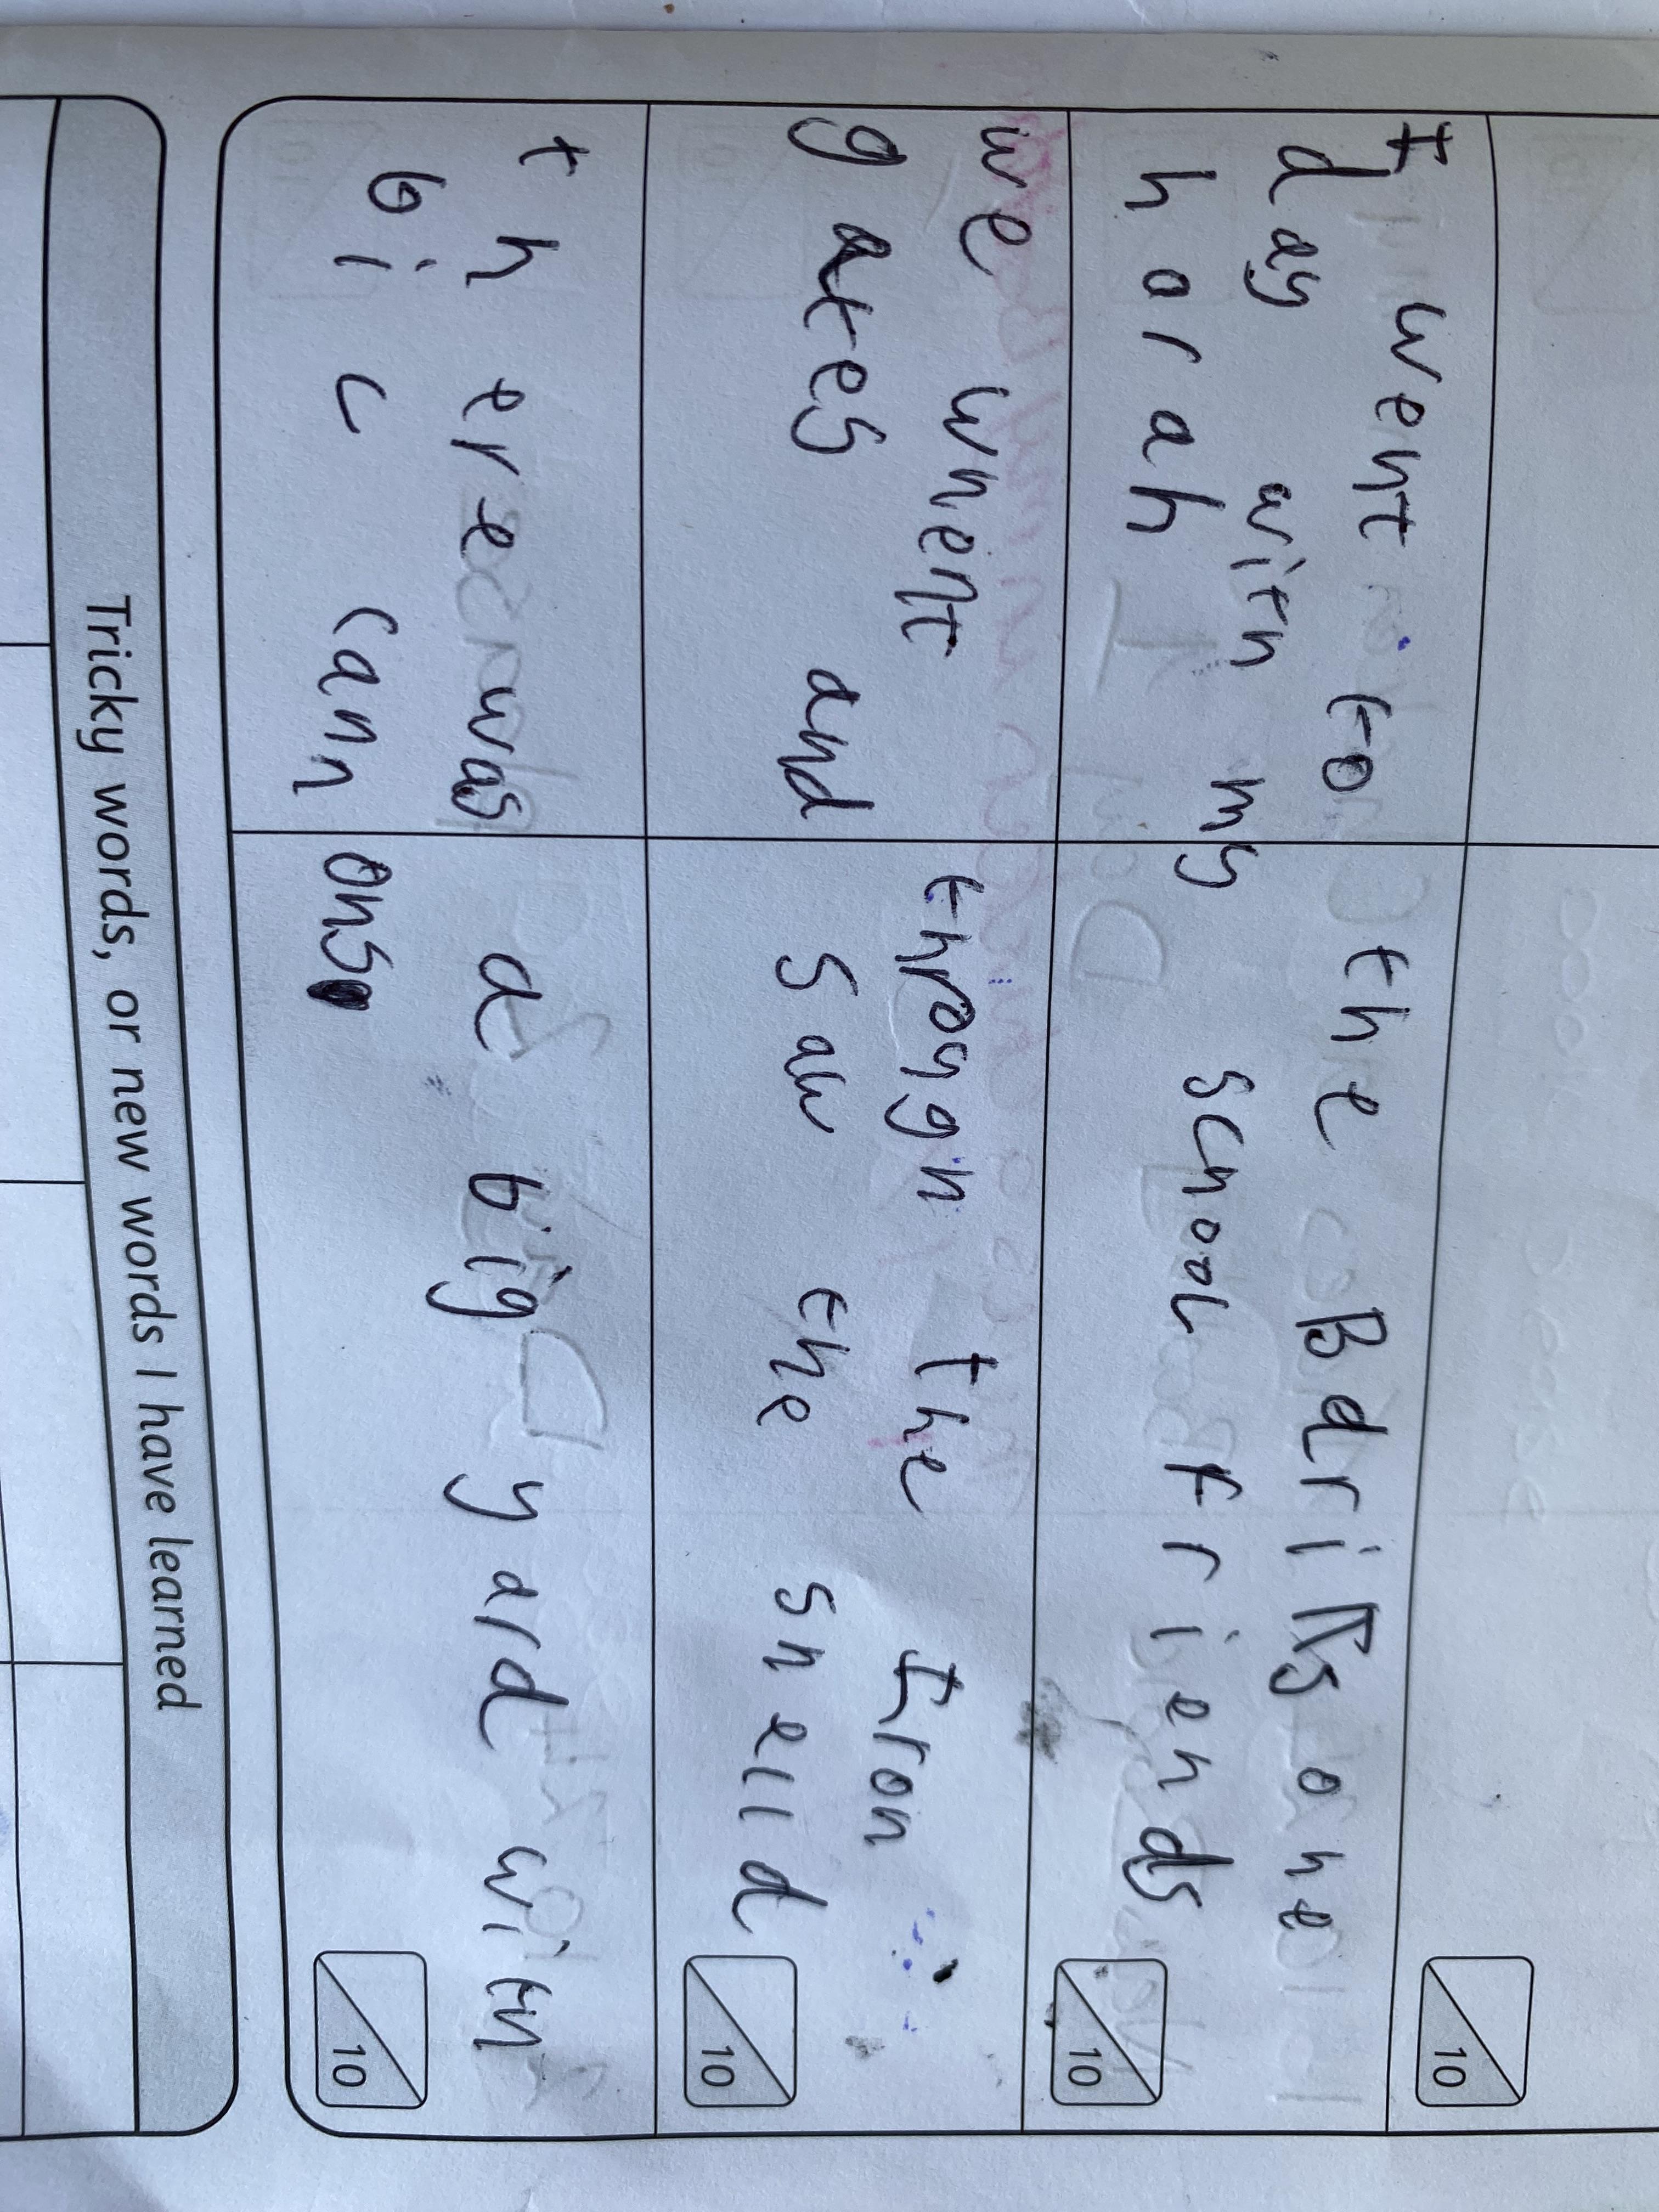 I went to the Bdriks one
day with my school friends
harah
10
10
we went throygh the Iron
gates and saw the sheild
10
there was a big yard with
bic cannons.
10
Tricky words, or new words I have learned